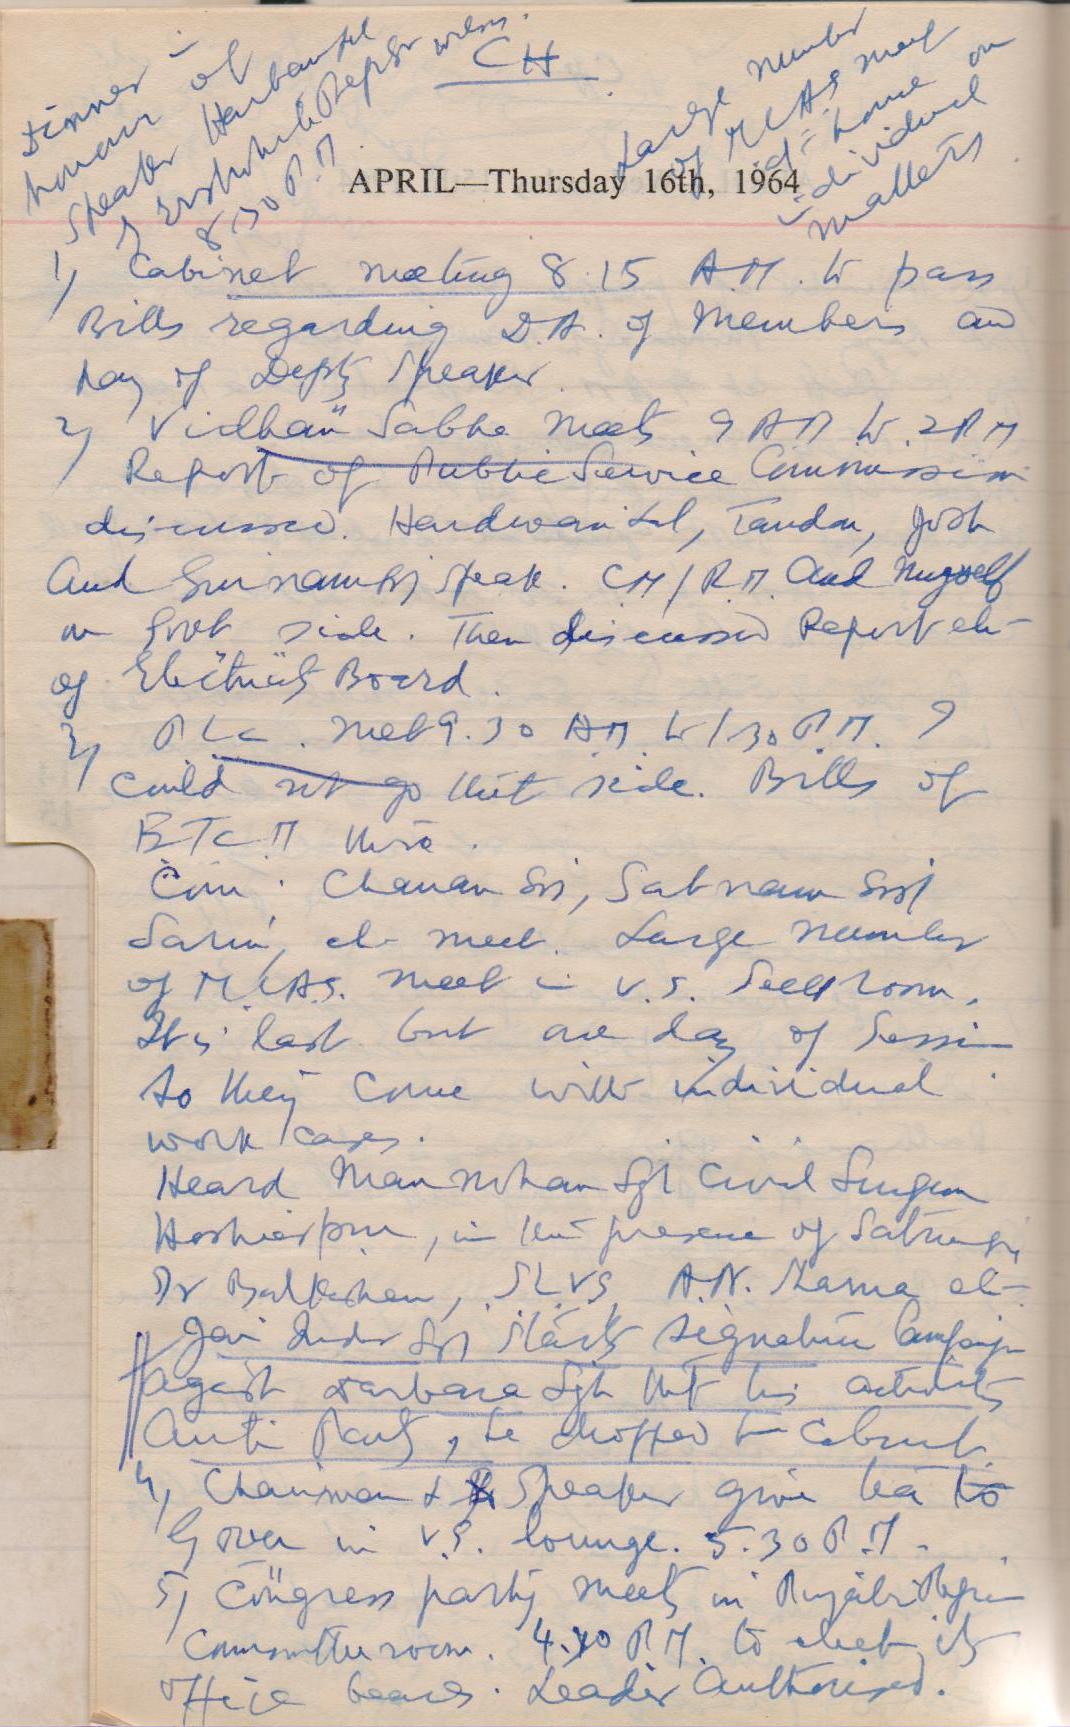 CH
Dinner in
honour of
Speaker Harbans Lal
8.30 P.M
Large number
of MLAs meet
at home on
individual
matters
APRIL—Thursday 16th, 1964
1) Cabinet meeting 8.15 A.M. to pass
Bills regarding D.A. of Members and
Pay of Depty Speaker.
2) Vidhan Sabha meets 9 AM to 2 PM
Report of Public Service Commission
discussed. Hardwari Lal, Tandon, Josh
and Gurnam Sgh speak. CM/R.M. and Myself
on Govt side. Then discussed Report etc
of Electricity Board.
3) P L C. met 9.30 AM to 1.30 P.M. I
could not go that side. Bills of
there.
Com: Chanan Sgh, Satnam Sgh
etc meet. Large number
of MLAs. meet in V.S. room.
It is last but one day of Session
so they come with individual
work cases.
Heard Man Mohan Sgh Civil Surgeon
Hoshiarpur, in the presence of
Dr Balkishan, A.N. etc
Jai Inder Sgh starts signature Campaign
against Darbara Sgh that his activities
Anti Party, be dropped from Cabinet.
4) Chairman & Speaker give tea to
Gover in V.S. lounge. 5.30 P.M.
5) Congress party meets in Punjabi Region
Committee room. 4. P.M. to elect its
office bearers. Leader Authorised.